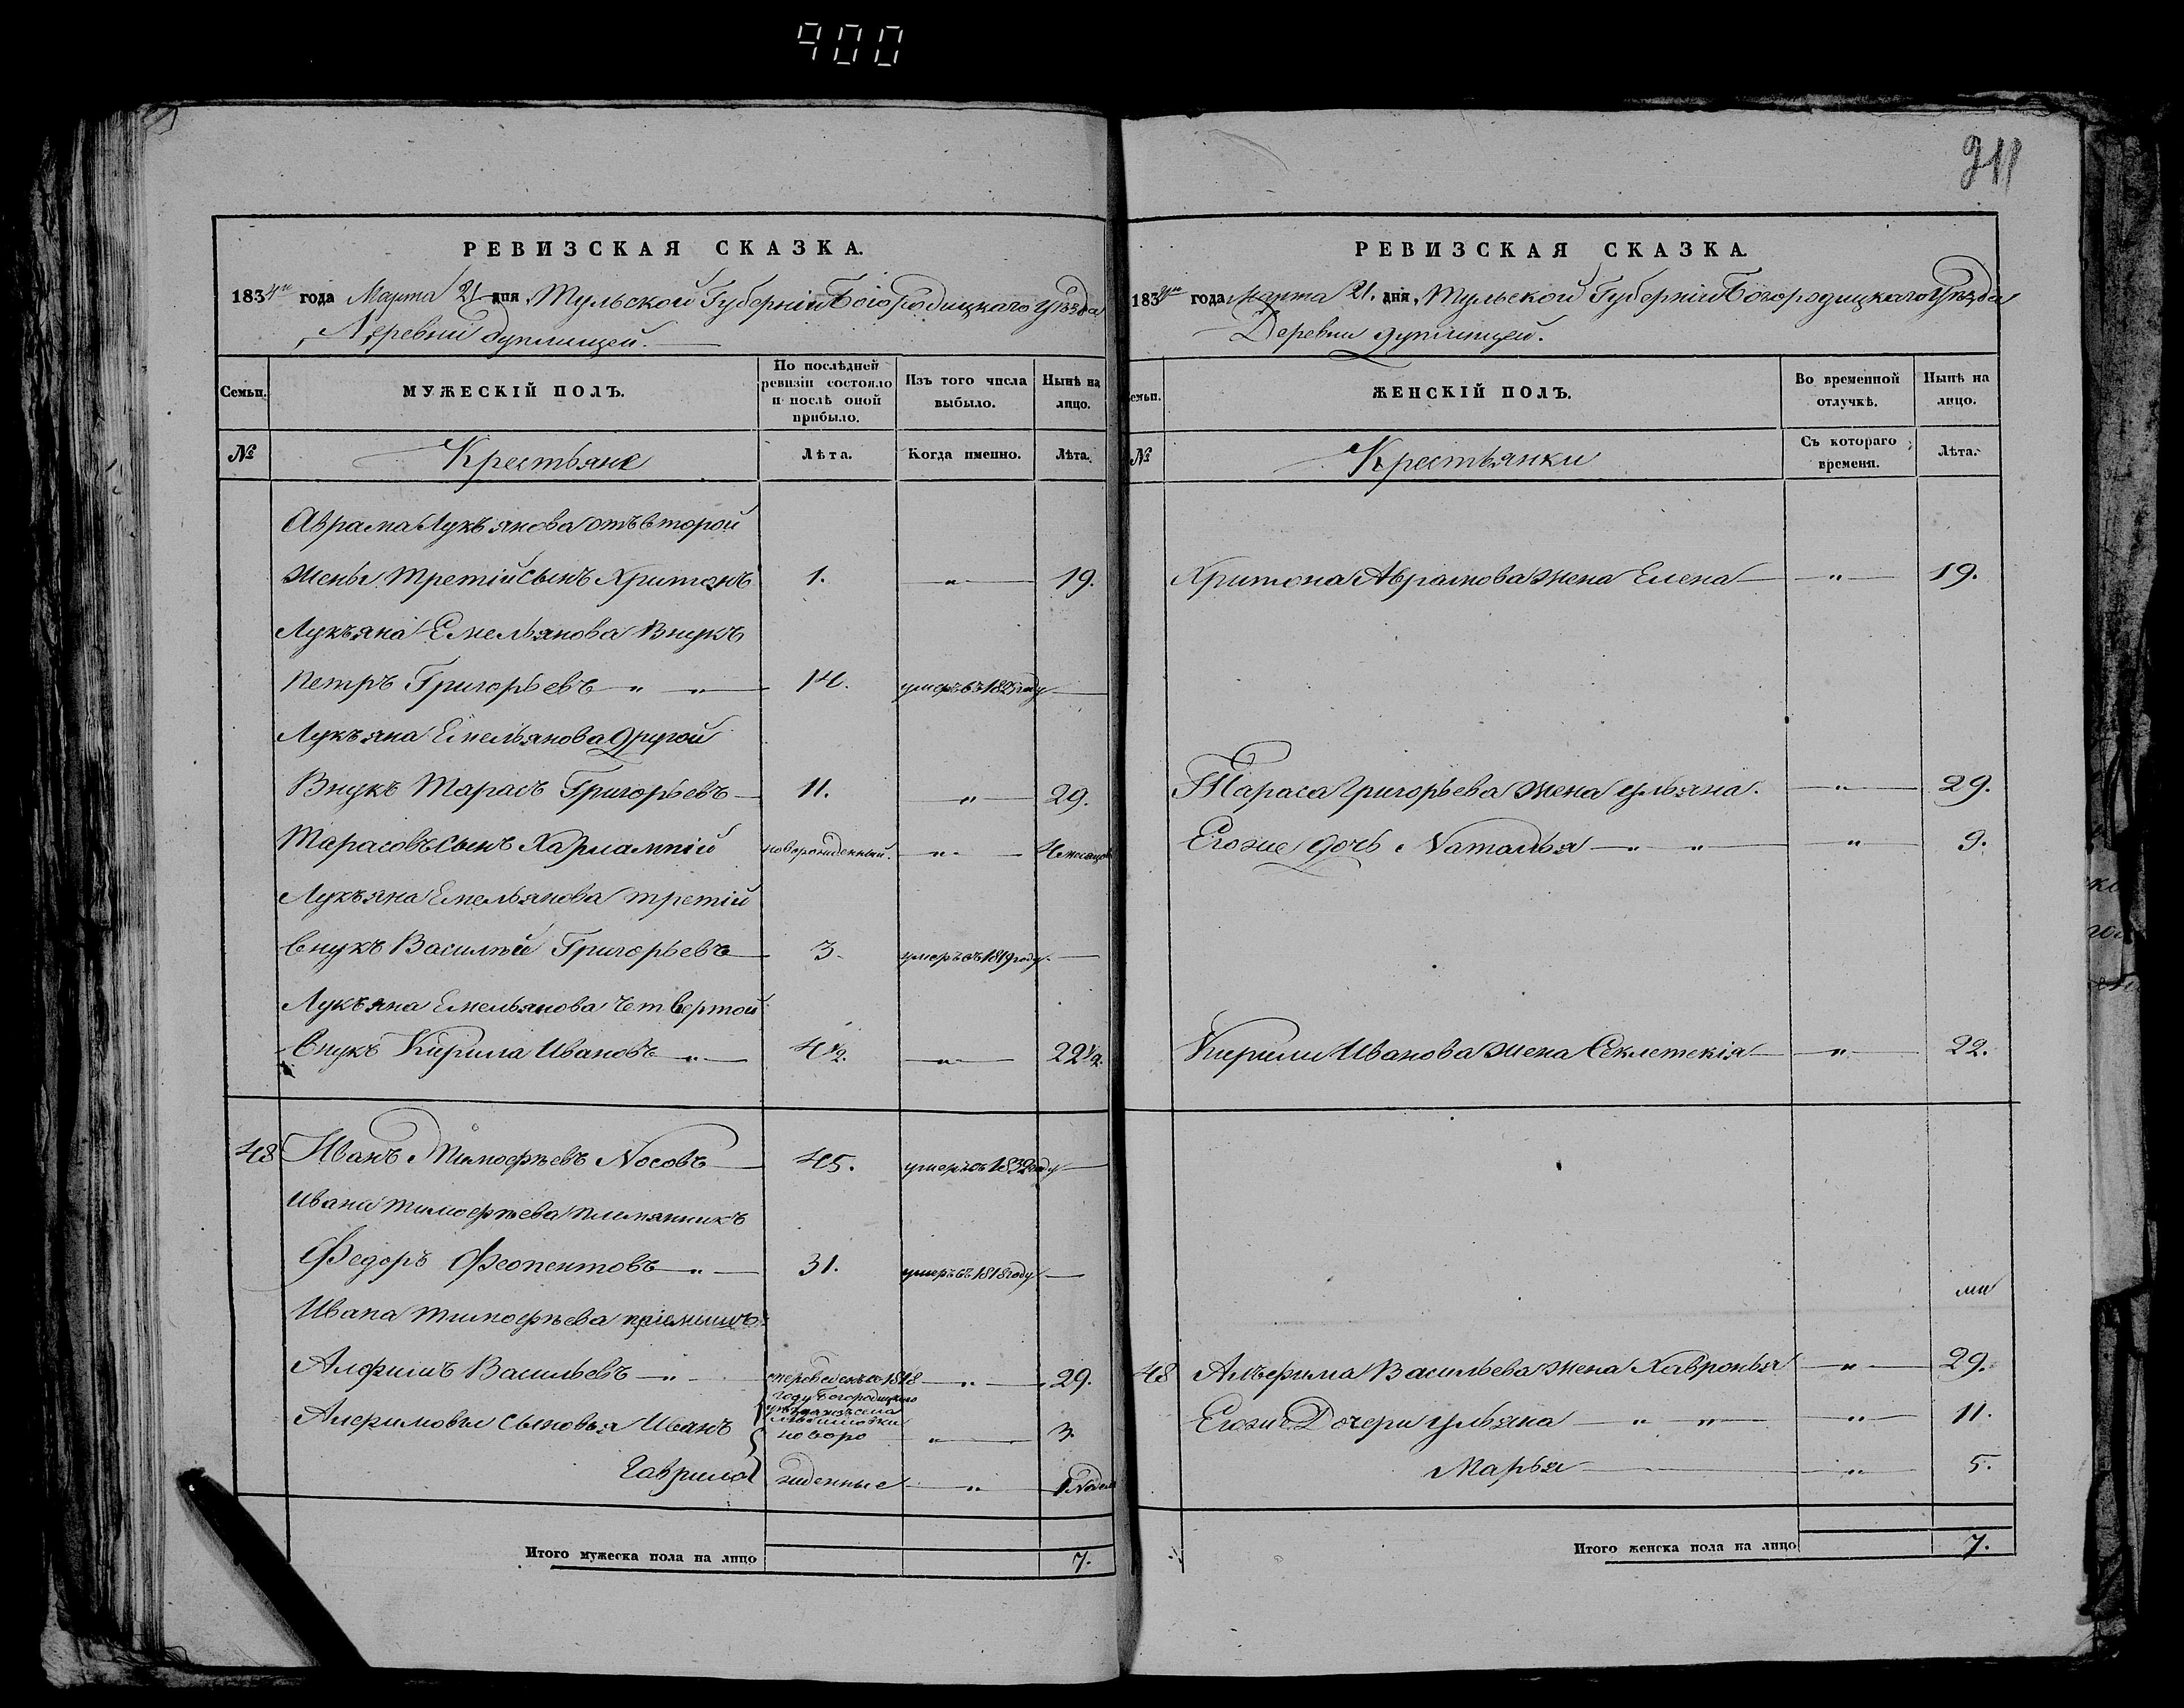 900
911
РЕВИЗСКАЯ СКАЗКА.
1834го года Марта 21 дня, Тульской Губерніи Богородицкаго Уѣзда
Деревни дуплищей.
Семьи.
МУЖЕСКІЙ ПОЛЪ.
По послѣдней ревизіи состояло и послѣ оной прибыло.
Изъ того числа выбыло.
Нынѣ на лицо.
№
Крестьяне
Лѣта.
Когда именно.
Лѣта.
Аврама Лукъянова отъ второй
жены третій сынъ Хритонъ 1. „ 19.
Лукъяна Емельянова Внукъ
Петръ Григорьевъ „ „ 14. умеръ въ 1825 году
Лукъяна Емельянова другой
Внукъ Тарасъ Григорьевъ 11. „ 29.
Тарасовъ сынъ Харлампій новорожденный. „ 4 месяцовъ
Лукъяна Емельянова третій
внукъ Василий Григорьевъ 3. умеръ въ 1819 году.
Лукъяна Емельянова четвертой
внукъ Кирила Ивановъ „ 4½. „ 22½.
48 Иванъ Тимофѣевъ Носовъ 45. умеръ въ 1832 году
Ивана тимофѣева племянникъ
Федоръ Феопентовъ „ 31. умеръ въ 1818 году
Ивана тимофѣева пріемышъ
Алфимъ Васильевъ „ переведенъ въ 1818 „ 29.
году Богородицкаго
уѣзда изъ села
Алфимовы сыновья Иванъ новоро „ 3.
Гаврило жденные „ 1 Недели
Итого мужеска пола на лицо 7.
РЕВИЗСКАЯ СКАЗКА.
1834го года Марта 21. дня, Тульской Губерніи Богородицкаго Уѣзда
Деревни дуплищей.
Семьи.
ЖЕНСКІЙ ПОЛЪ.
Во временной отлучкѣ.
Нынѣ на лицо.
№
Крестьянки
Съ котораго времени.
Лѣта.
Хритона Аврамова жена Елена „ 19.
Тараса григорьева жена ульяна. „ 29.
Его же дочь Наталья „ „ „ 9.
Кирили Иванова жена Секлетекія „ 22.
48 Алферима Васильева жена Хавронья „ 29.
Его же Дочери ульяна „ „ „ 11.
Марья „ 5.
Итого женска пола на лицо 7.